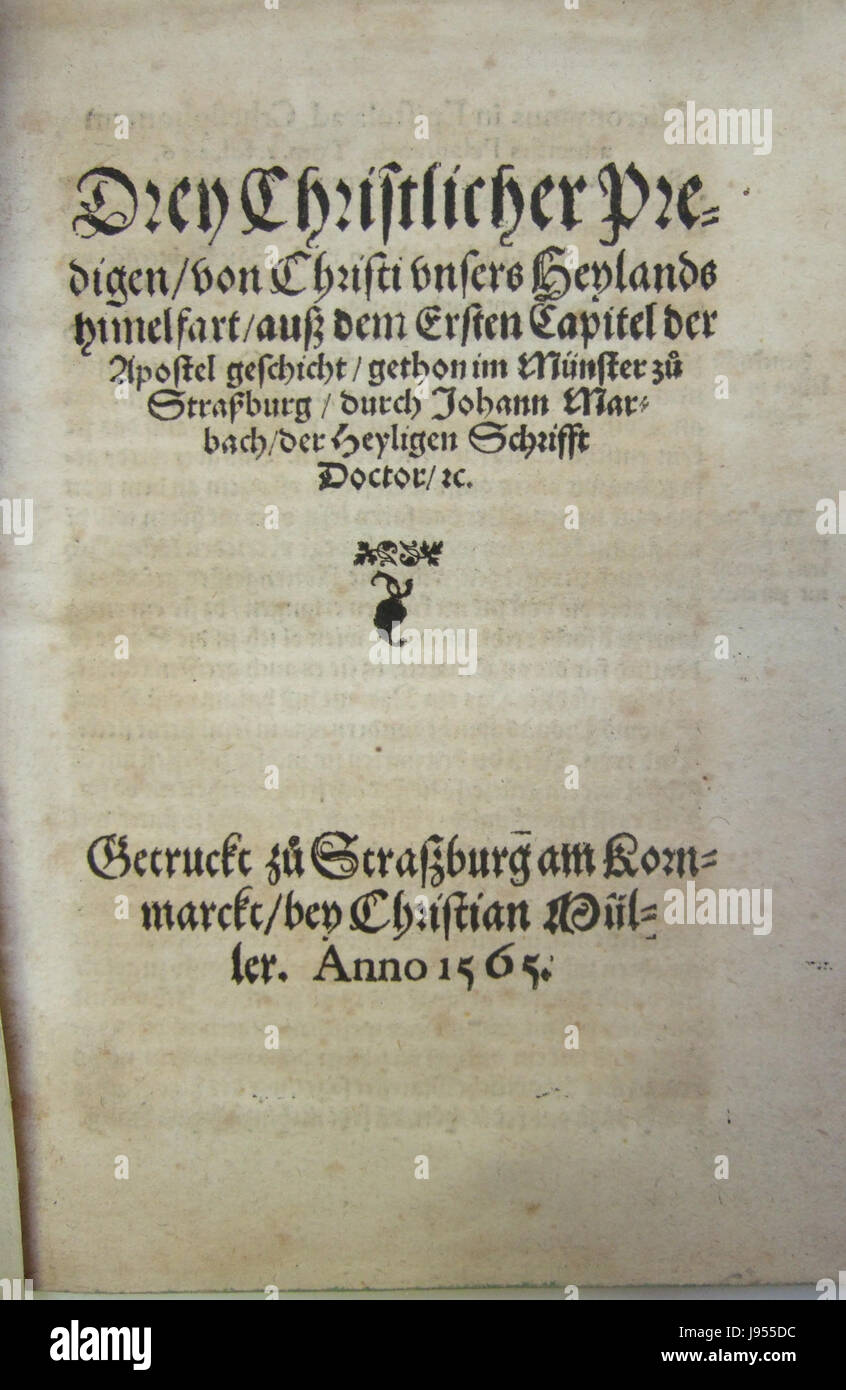 Drey Christlicher Pre-
digen/von Christi vnsers Heylands
himelfart/auß dem Ersten Capitel der
Apostel geschicht/gethon im Münster zů
Straßburg/durch Johann Mar-
bach/der Heyligen Schrifft
Doctor/ꝛc.
Getruckt zů Straßburg am Korn-
marckt/bey Christian Mül-
ler. Anno 1565.
alamy
alamy
Image ID: J955DC
www.alamy.com